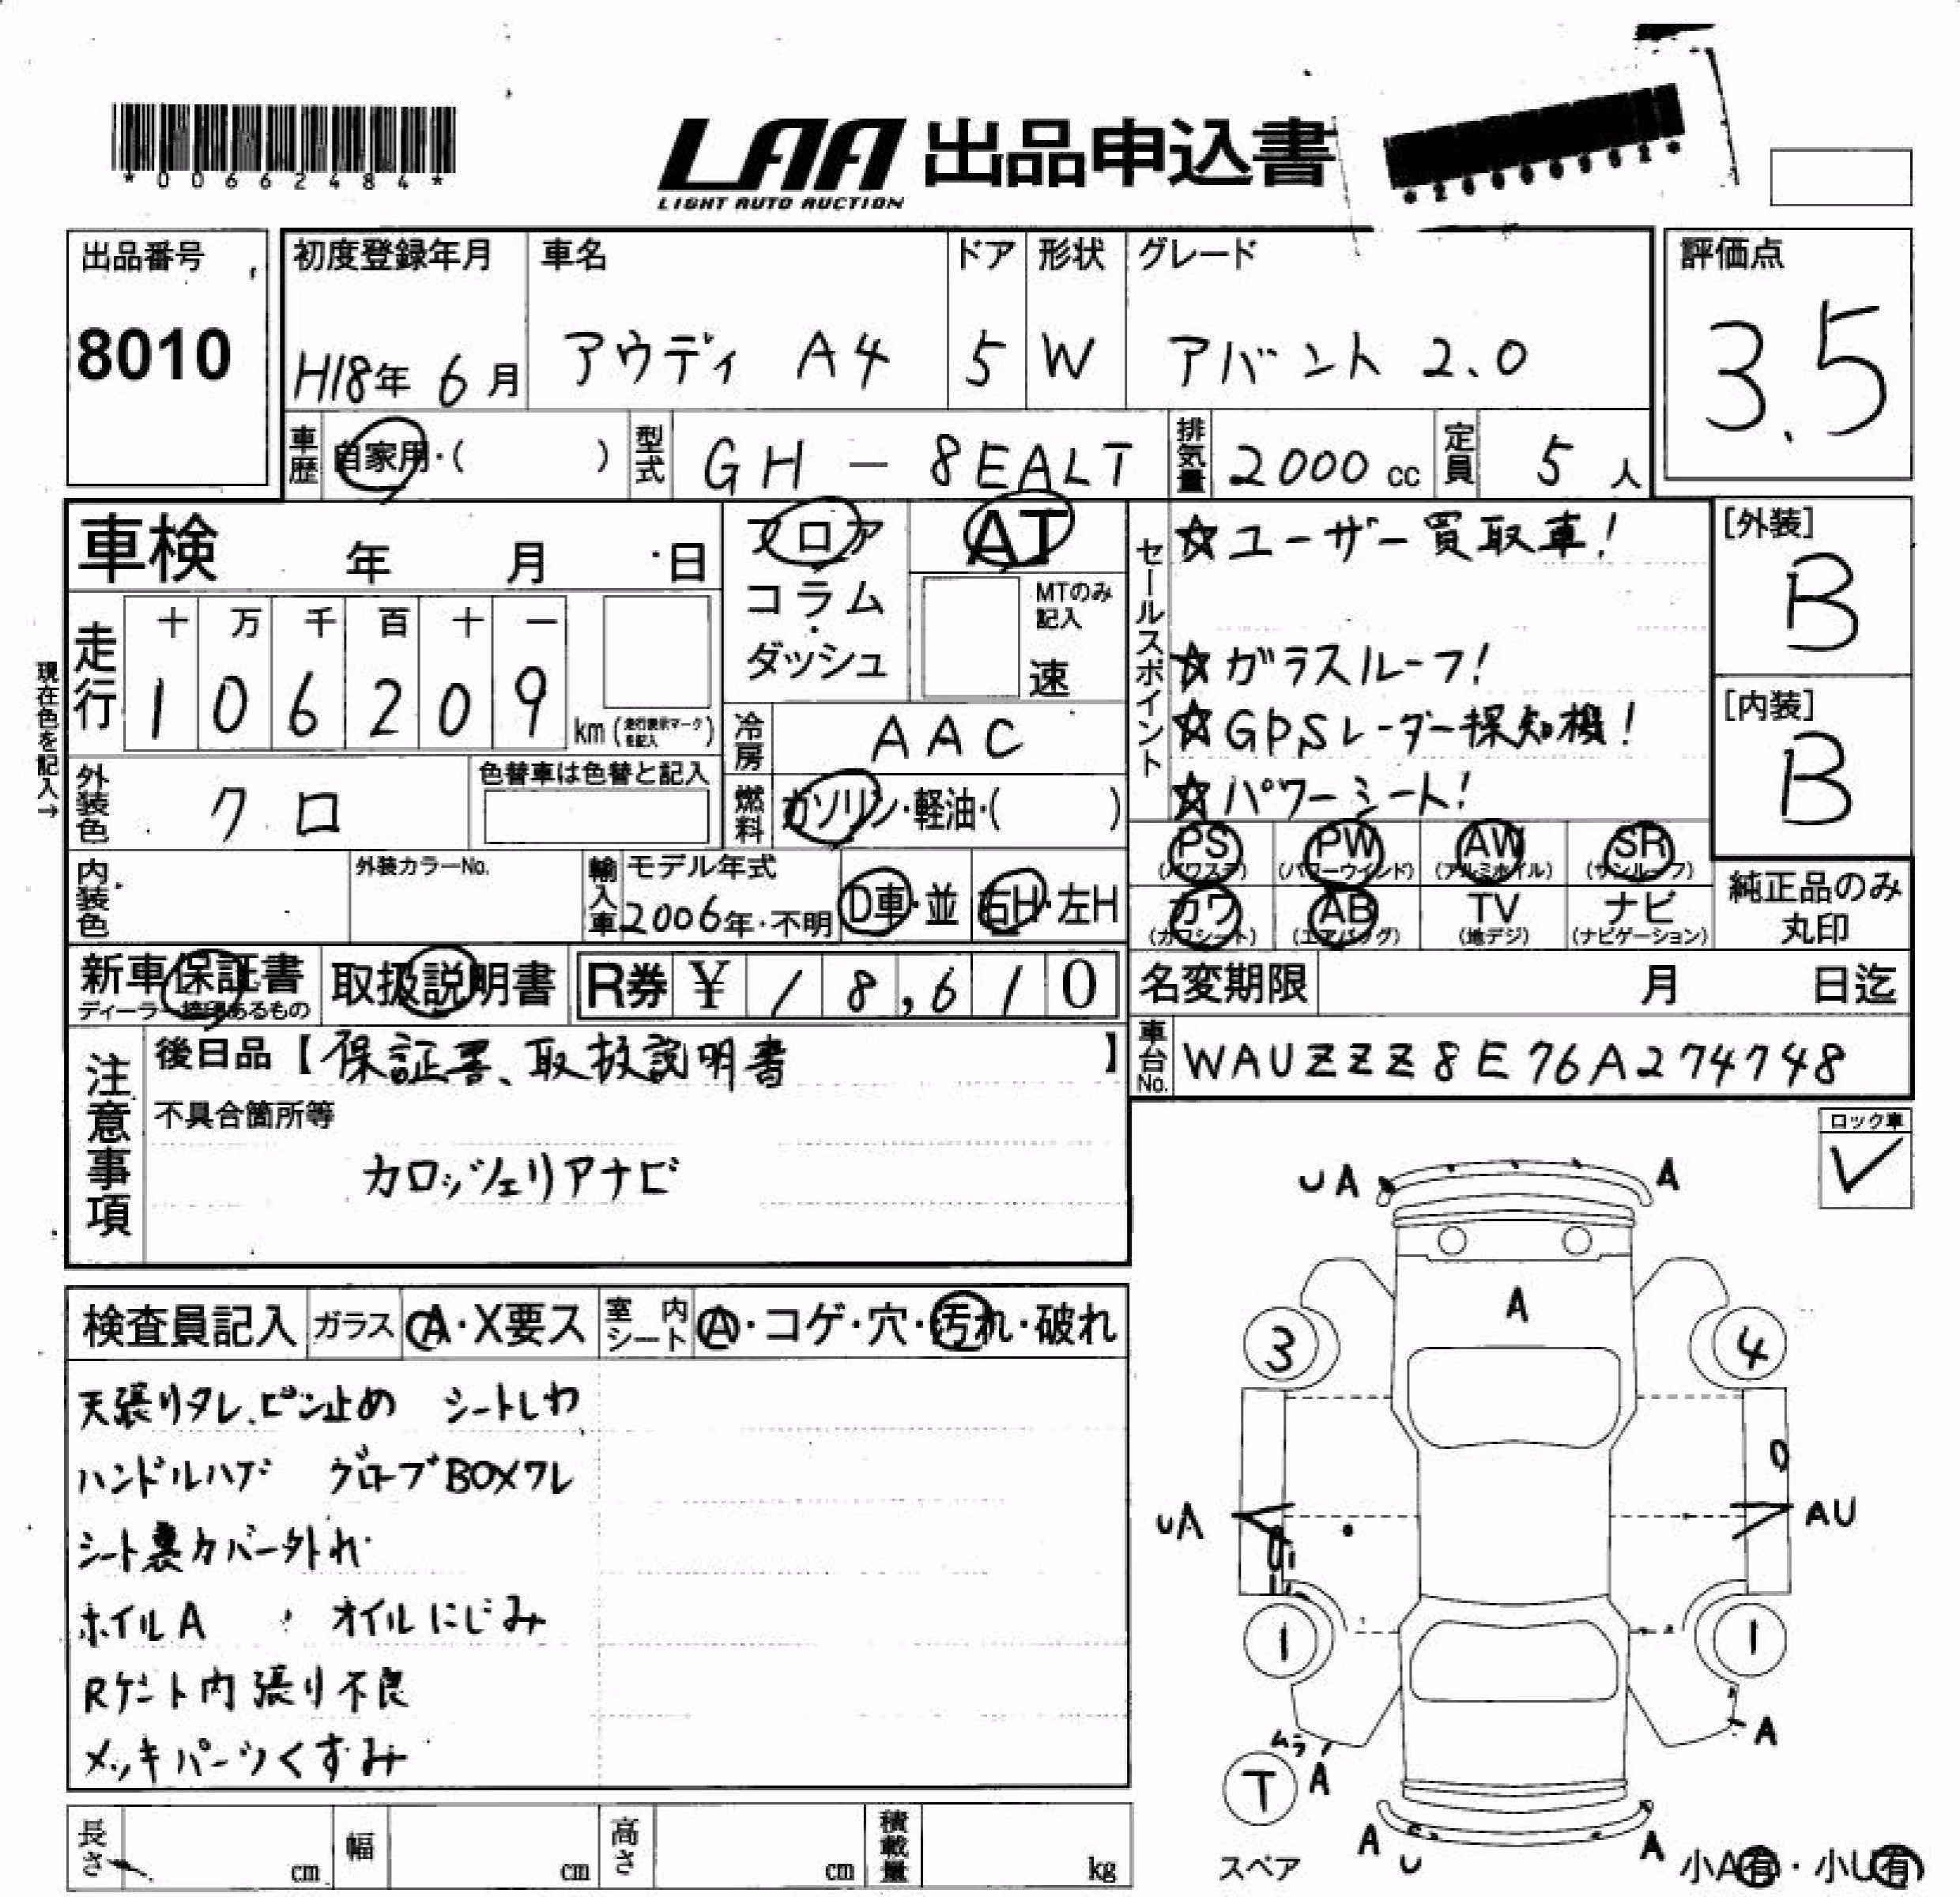 *00662484*
LAA 出品申込書
LIGHT AUTO AUCTION
出品番号
8010
初度登録年月
H18年 6月
車名
アウディ A4
ドア
5
形状
W
グレード
アバント 2.0
評価点
3.5
車歴 自家用・( )
型式 GH - 8EALT
排気量 2000 cc
定員 5 人
車検 年 月 日
フロア
コラム
・
ダッシュ
AT
MTのみ記入
速
セールスポイント
☆ユーザー買取車!
☆ガラスルーフ!
☆GPSレーダー探知機!
☆パワーシート!
[外装]
B
[内装]
B
現在色を記入→
走行
十 万 千 百 十 一
1 0 6 2 0 9
km (走行表示マークを記入)
冷房 AAC
外装色 クロ
色替車は色替と記入
燃料 ガソリン・軽油・( )
内装色
外装カラーNo.
輸入車
モデル年式
2006年・不明
D車・並
右H・左H
PS (パワステ)
PW (パワーウインド)
AW (アルミホイル)
SR (サンルーフ)
カワ (カワシート)
AB (エアバッグ)
TV (地デジ)
ナビ (ナビゲーション)
純正品のみ
丸印
新車保証書
ディーラー捺印あるもの
取扱説明書
R券 ¥ 18,610
名変期限 月 日迄
注意事項
後日品【保証書、取扱説明書】
不具合箇所等
カロッツェリアナビ
車台No. WAUZZZ8E76A274748
ロック車
✓
検査員記入
ガラス A・X要ス
室内シート A・コゲ・穴・汚れ・破れ
天張りタレ、ピン止め シートしわ
ハンドルハゲ グローブBOXワレ
シート裏カバー外れ
ホイルA オイルにじみ
Rゲート内張り不良
メッキパーツくすみ
UA
A
A
3
4
UA
AU
1
1
ムラ
A
A
T
スペア
A
U
A
小A有・小U有
長さ cm
幅 cm
高さ cm
積載量 kg